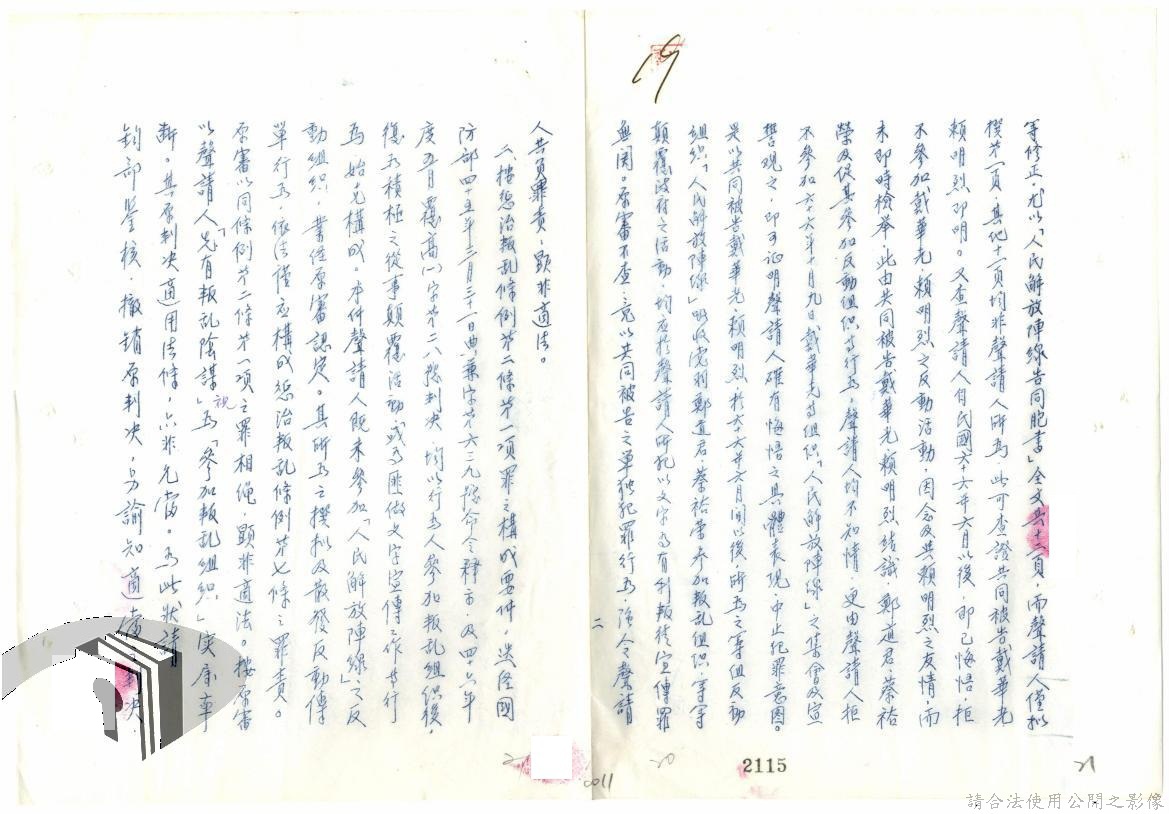 等修正,尤以「人民解放陣線告同胞書」全文共十二頁,而聲請人僅擬
撰第一頁,其他十一頁均非聲請人所為,此可查證共同被告戴華光
賴明烈即明。又查聲請人自民國六十六年六月以後,即已悔悟拒
不參加戴華光、賴明烈之反動活動,因念及與賴明烈之友情,而
未即時檢舉,此由共同被告戴華光賴明烈結識鄭道君、蔡祐
榮及促其參加反動組織等行為,聲請人均不知情,更由聲請人拒
不參加六十六年十月九日戴華光等組織「人民解放陣線」之集會及宣
誓觀之,即可証明聲請人確有悔悟之具體表現,中止犯罪意圖。
是以共同被告戴華光、賴明烈於六十六年六月間以後,所為之籌組反動
組織「人民解放陣線」吸收鄭道君、蔡祐榮參加叛乱組織,等等
顛覆政府之活動,均应於聲請人所犯以文字為有利叛徒宣傳罪
無関。原審不查,竟以共同被告之單独犯罪行為,強令聲請
二
人共負罪責,顕非適法。
二、按懲治叛乱條例第二條第一項罪之構成要件,迭経國
防部四十五年三月三十一日典兼字第六三九號令令釋示及四十六年
度五月覆高(一)字第二八號判決,均以行為人參加叛乱組織後,
復為積極之從事顛覆活動或為匪做文字宣傳工作等行
為,始克構成。本件聲請人既未參加「人民解放陣線」之反
動組織,業経原審認定。其所為之撰拟及散發反動傳
單行為,依法僅应構成懲治叛乱條例第七條之罪責。
原審以同條例第二條第一項之罪相绳,顕非適法。按原審
以聲請人「先有叛乱陰謀」視為「參加叛乱組織」误屬率
断。其原判決適用法條,亦非允當。為此狀請
鈞部鉴核,撤銷原判決,另諭知適當之判決。
19
2115
20
21
0011
請合法使用公開之影像